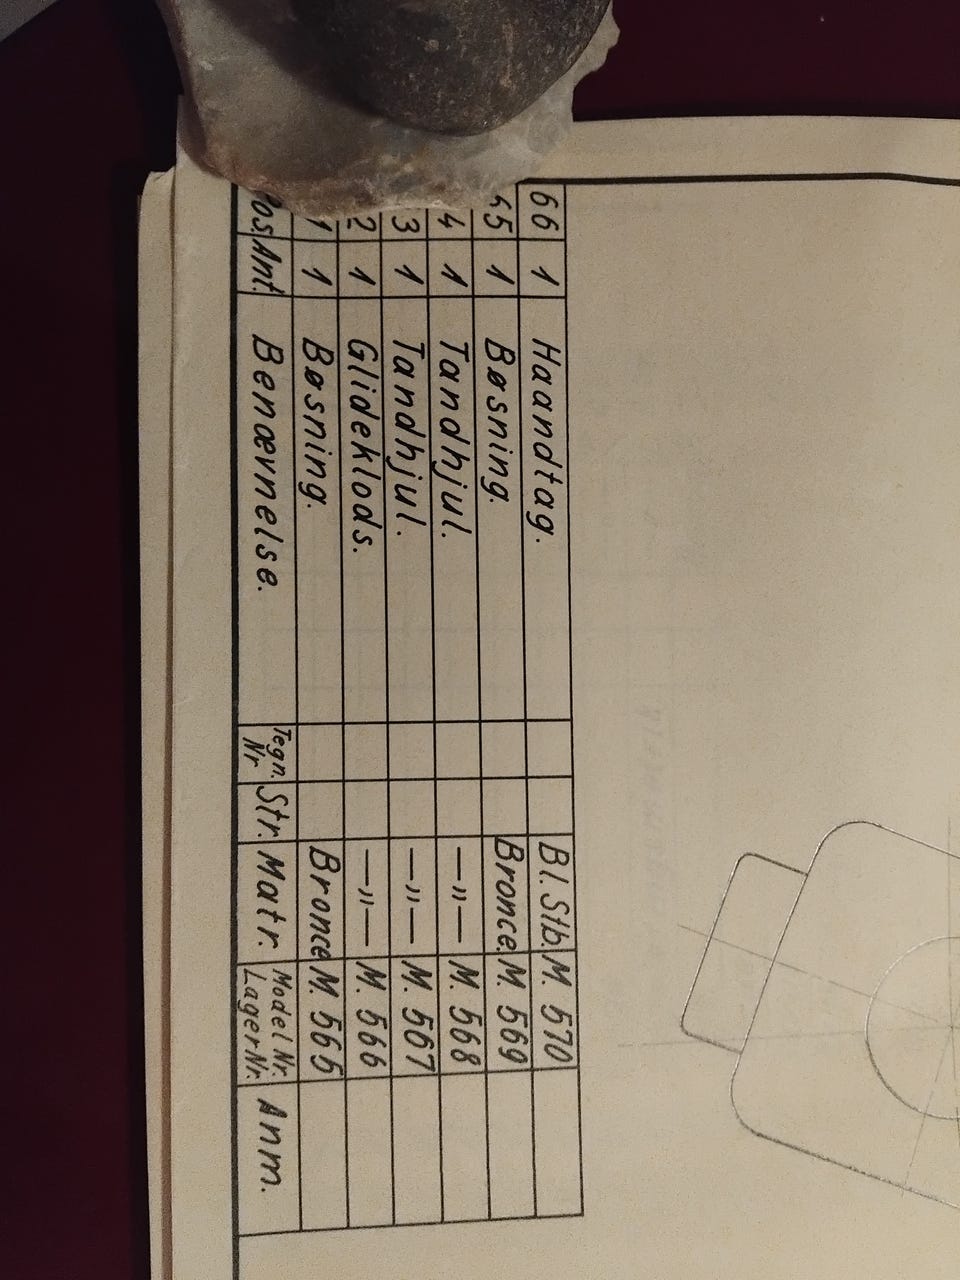 66 1 Haandtag. Bl. Stb. M. 570
65 1 Bøsning. Bronce. M. 569
4 1 Tandhjul. —〃— M. 568
3 1 Tandhjul. —〃— M. 567
2 1 Glideklods. —〃— M. 566
1 1 Bøsning. Bronce M. 565
Pos. Ant. Benævnelse. Tegn. Nr Str. Matr. Model Nr. Lager Nr. Anm.